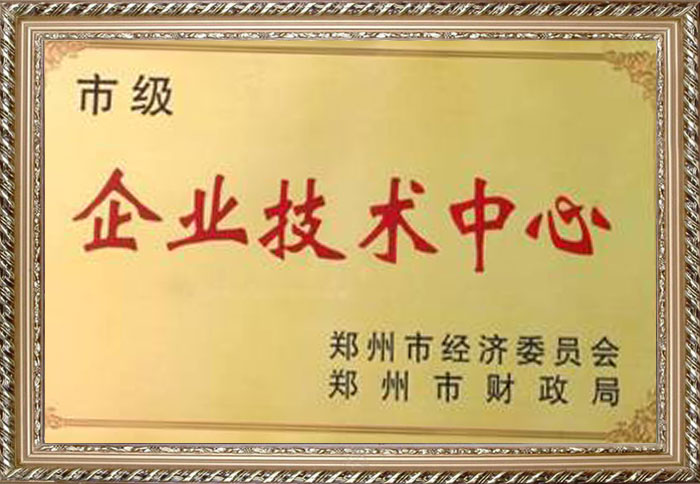 市级
企业技术中心
郑州市经济委员会
郑州市财政局